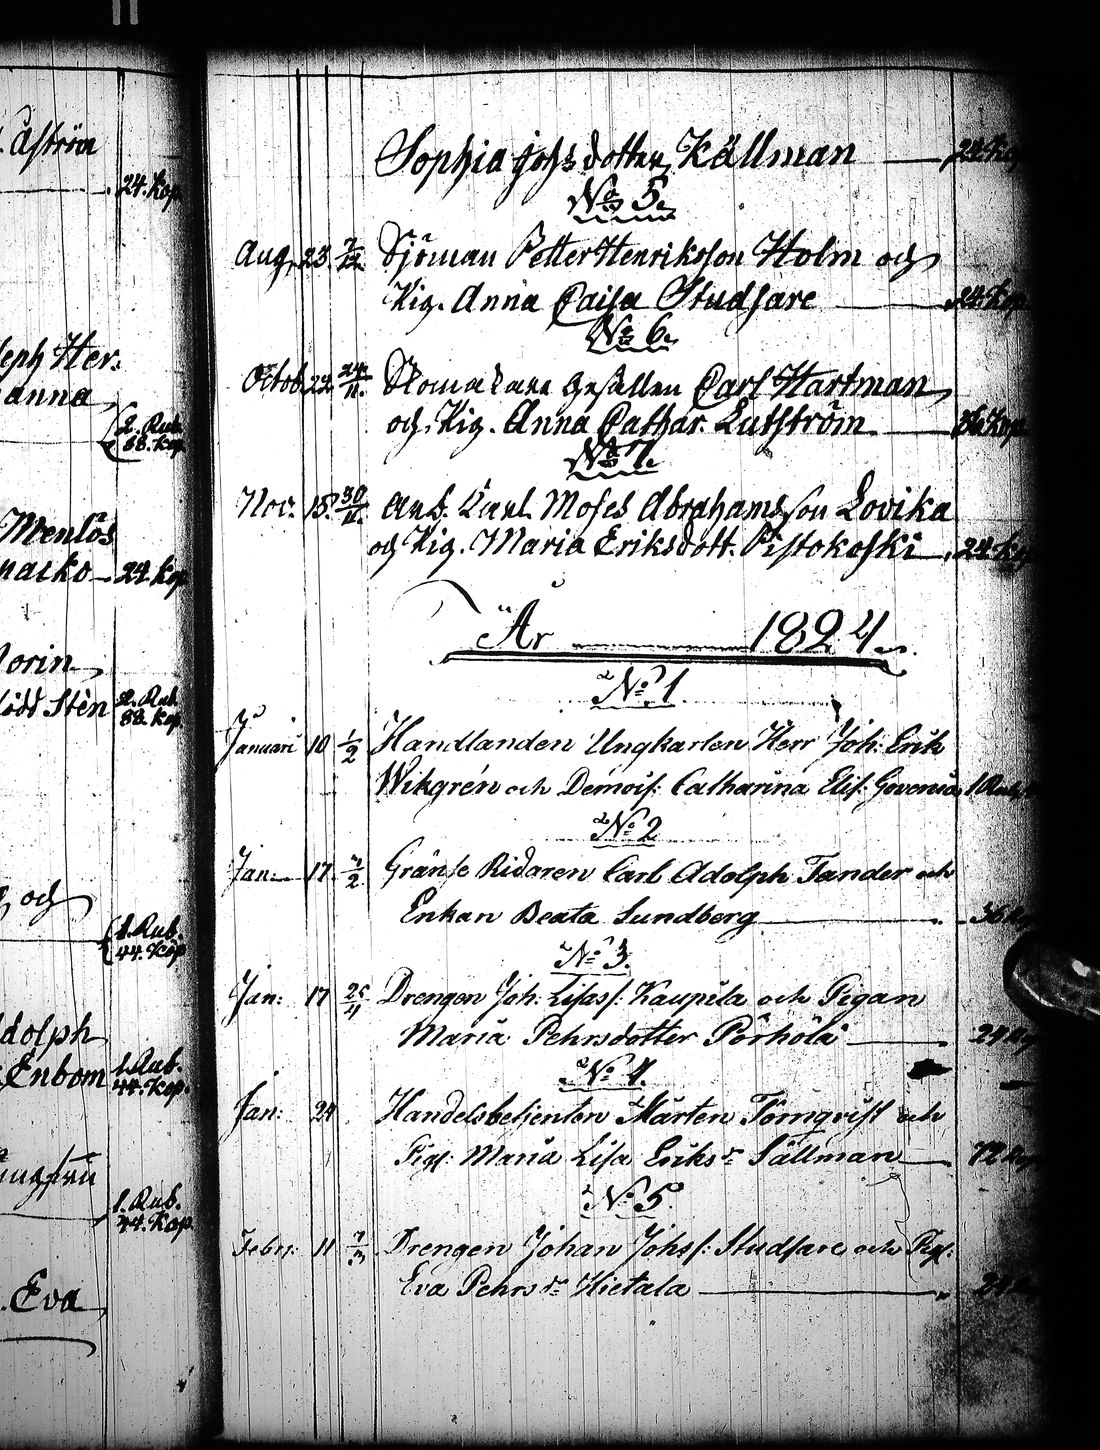 . Åström
24. Kop
seph Her.
anna
2. Rub.
88. Kop
Menlös
naiko 24. Kop
Morin
Född Stén 2. Rub.
88. Kop.
och
1. Rub.
44. Kop
Adolph
Enbom 1. Rub.
44. Kop.
ungfru
1. Rub.
44. Kop.
. Eva
Sophia Johsdotter Källman 24. Kop
No 5.
Aug. 23. 7/12 Sjöman Petter Henriksson Holm och
Pig. Anna Caisa Studsare 24. Kop
No 6.
Octob. 22 24/11. Skomakare Gesällen Carl Hartman
och Pig. Anna Cathar. Lutström 36 Kop
No 7.
Nov. 15. 30/11. Arb. Karl Moses Abrahamsson Lovika
och Pig. Maria Eriksdott. Pistokoski 24 Kop
År 1824
No 1.
Januari 10 1/2 Handlanden Ungkarlen Herr Joh: Erik
Wikgrén och Demois: Catharina Elis: Govenia 1 Rub
No 2
Jan: 17. 1/2 Gränse Ridaren Carl Adolph Tander och
Enkan Beata Sundberg 36 Kop
No 3.
Jan: 17 25/4 Drengen Joh: Lisass: Kaupila och Pigan
Maria Pehrsdotter Pörhölä 24 Kop
No 4.
Jan: 24 Handelsbetjenten Mårten Törnqvist och
Pig: Maria Lisa Eriksdr Sällman 72 Kop
No 5.
Febr: 11 7/3 Drengen Johan Johss: Studsare och Pig:
Eva Pehrsdr Hietala 24